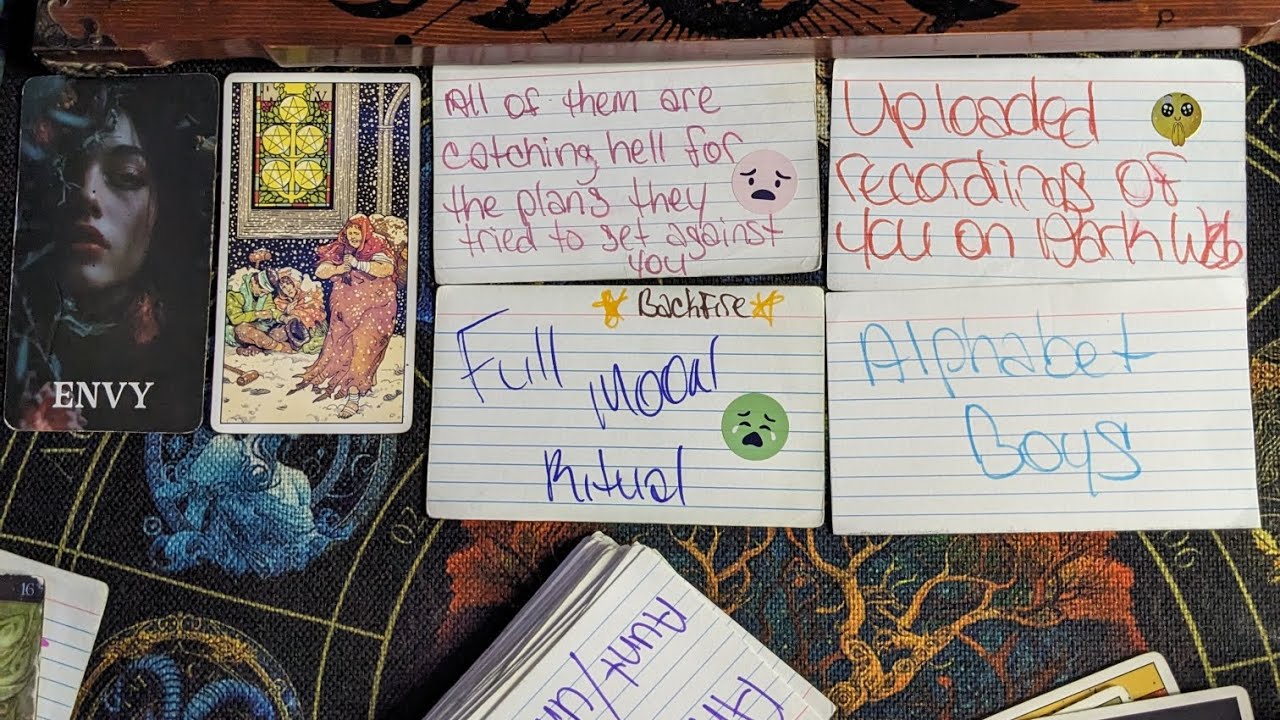 ENVY
All of them are
catching hell for
the plans they
tried to set against
you
Uploaded
recordings of
you on Dark Web
BackFire
Full Moon
Ritual
Alphabet
Boys
16
Aunt/